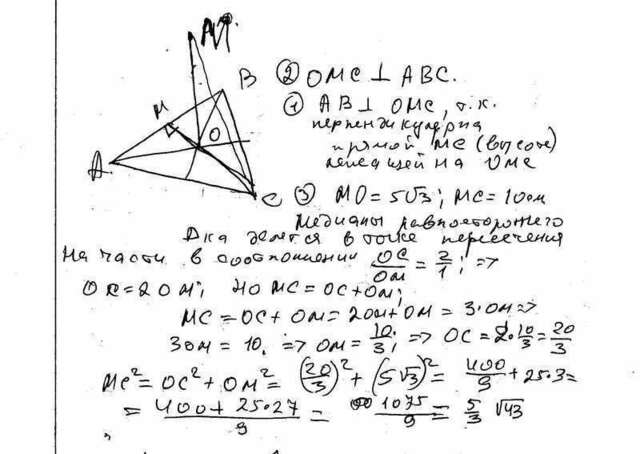 М
B
M
O
A
C
② OMC ⊥ ABC.
① AB ⊥ OMC, т.к.
перпендикулярна
прямой MC (высоте)
лежащей на OMC
③ MO = 5√3; MC = 10см
Медианы равностороннего
Δка делятся в точке пересечения
на части в соотношении OC/OM = 2/1; =>
OC = 2OM; но MC = OC + OM;
MC = OC + OM = 2OM + OM = 3·OM =>
3OM = 10. => OM = 10/3; => OC = 2·10/3 = 20/3
MC² = OC² + OM² = (20/3)² + (5√3)² = 400/9 + 25·3 =
= 400 + 25·27/9 = 1075/9 = 5/3 √43